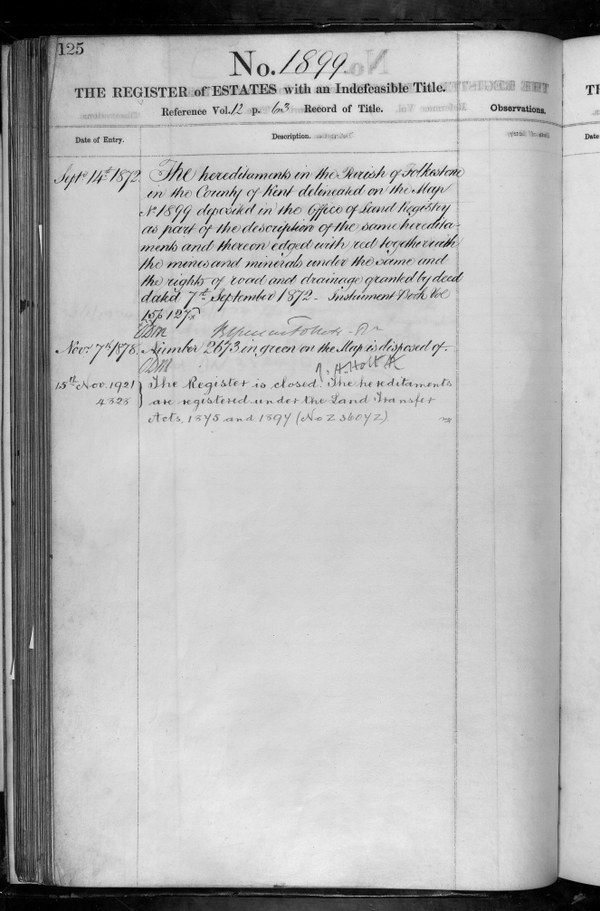 125
No. 1899.
THE REGISTER of ESTATES with an Indefeasible Title.
Reference Vol. 12 p. 63 Record of Title.
Observations.
Date of Entry.
Description.
Septr 14th 1872.
The hereditaments in the Parish of Folkestone
in the County of Kent delineated on the Map
No 1899 deposited in the Office of Land Registry
as part of the description of the same heredita-
ments and thereon edged with red together with
the mines and minerals under the same and
the rights of road and drainage granted by deed
dated 7th September 1872 - Instrument Book Vol
15 p 127.
Novr 7th 1878.
Number 2673 in green on the Map is disposed of.
J. H. Holt
15th Nov. 1921
4323
The Register is closed. The hereditaments
are registered under the Land Transfer
Acts, 1875 and 1897 (No